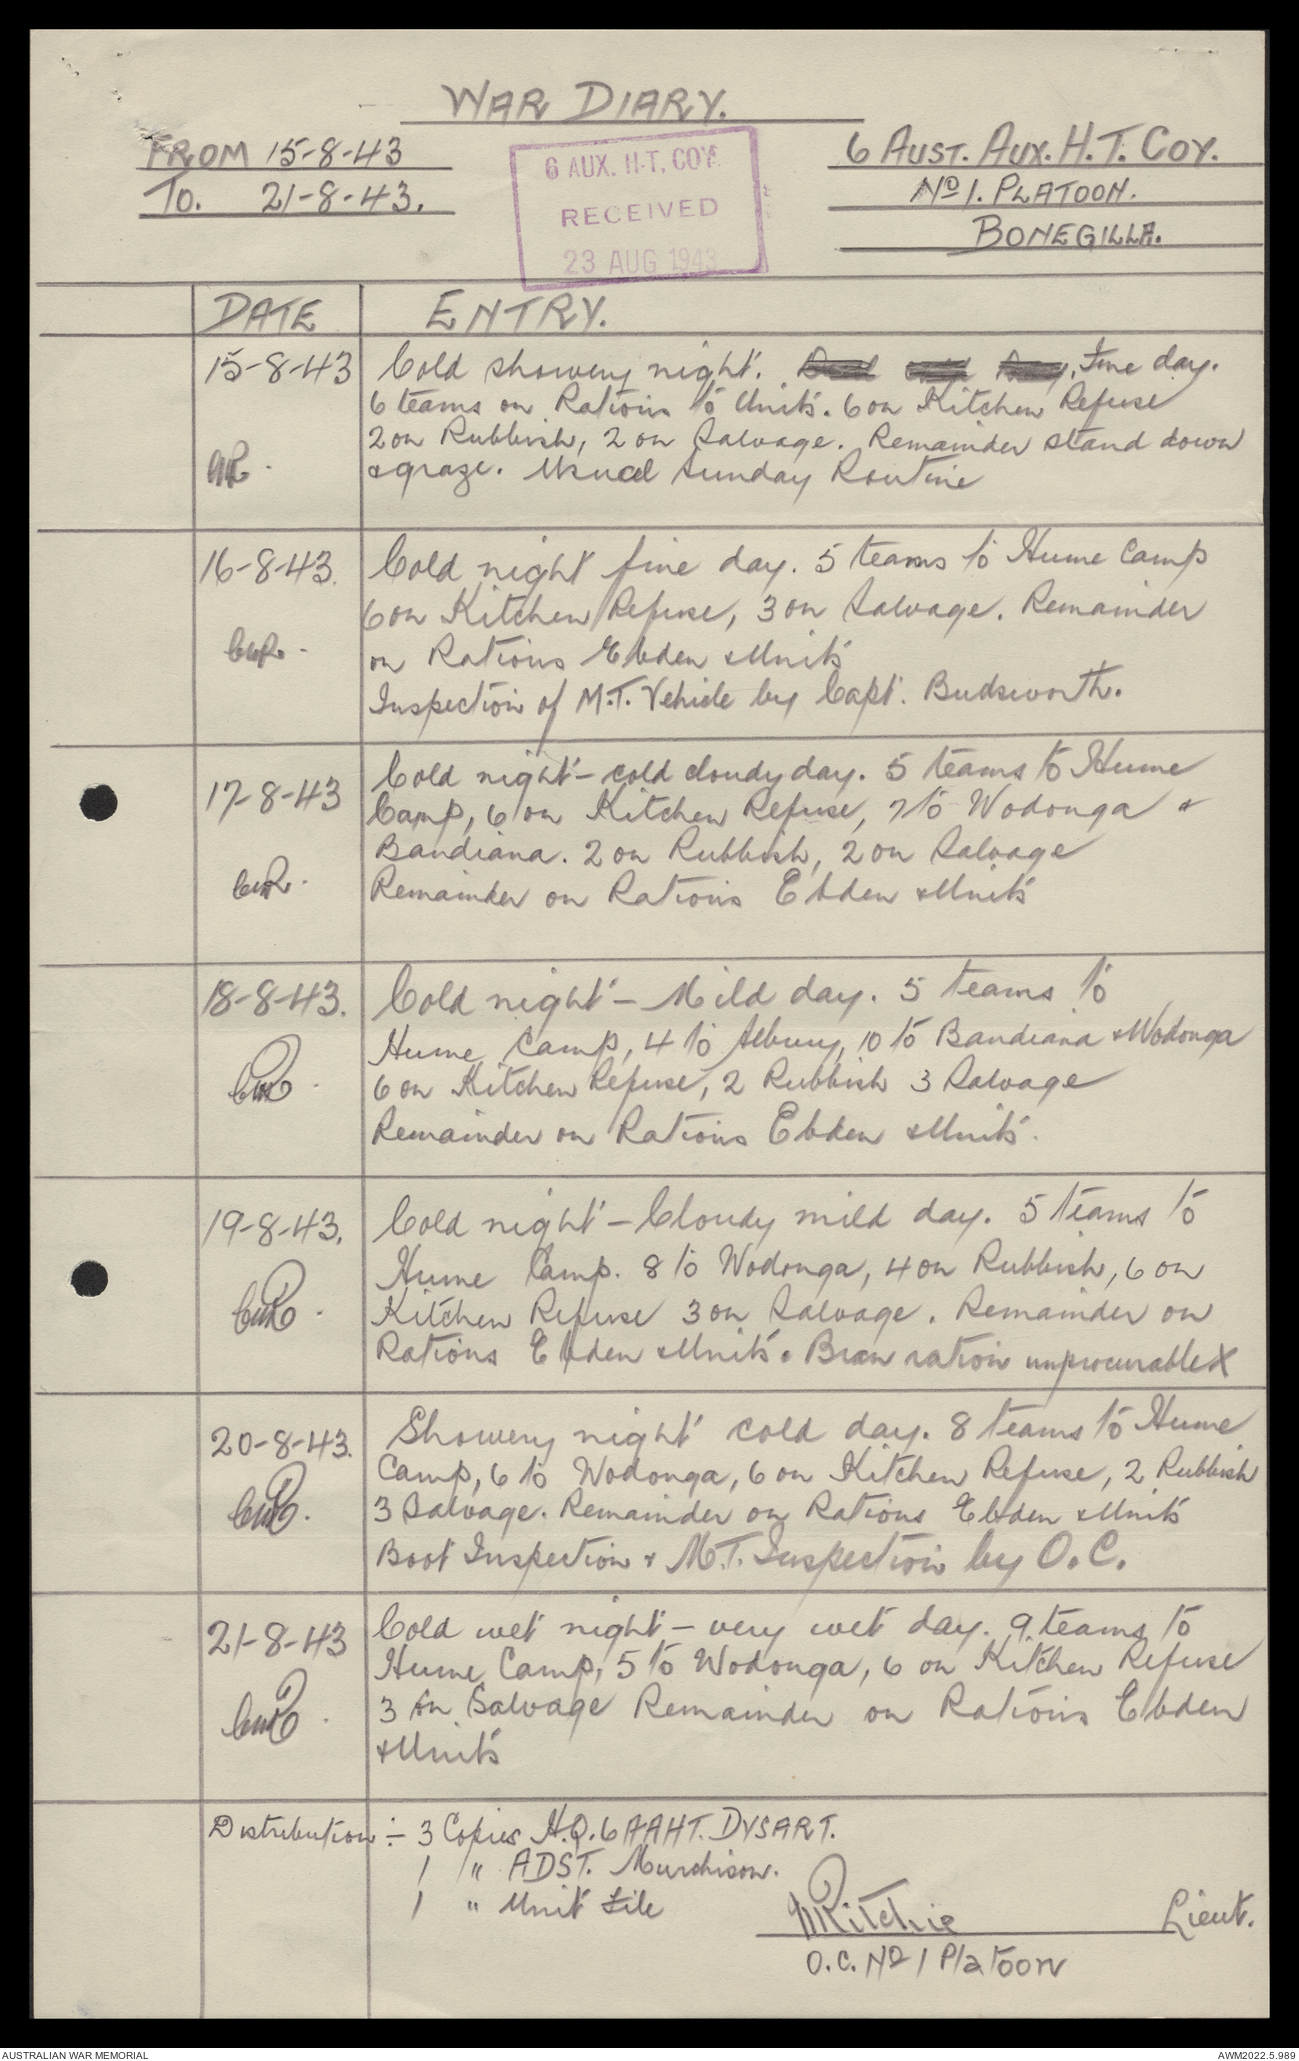 WAR DIARY.
FROM 15-8-43
TO. 21-8-43.
6 AUX. H-T. COY.
RECEIVED
23 AUG 1943
6 AUST. AUX. H.T. COY.
No 1. PLATOON.
BONEGILLA.
DATE ENTRY.
15-8-43 Cold showery night. Fine day.
6 teams on Rations to Units. 6 on Kitchen Refuse
2 on Rubbish, 2 on Salvage. Remainder stand down
& graze. Usual Sunday Routine
16-8-43. Cold night fine day. 5 teams to Hume Camp
6 on Kitchen Refuse, 3 on Salvage. Remainder
on Rations Ebden & Units
Inspection of M.T. Vehicle by Capt. Budsworth.
17-8-43 Cold night - cold cloudy day. 5 teams to Hume
Camp, 6 on Kitchen Refuse, 7 to Wodonga &
Bandiana. 2 on Rubbish, 2 on Salvage
Remainder on Rations Ebden & Units
18-8-43. Cold night - Mild day. 5 teams to
Hume Camp, 4 to Albury, 10 to Bandiana & Wodonga
6 on Kitchen Refuse, 2 Rubbish 3 Salvage
Remainder on Rations Ebden & Units.
19-8-43. Cold night - Cloudy mild day. 5 teams to
Hume Camp. 8 to Wodonga, 4 on Rubbish, 6 on
Kitchen Refuse 3 on Salvage. Remainder on
Rations Ebden & Units. Bran ration unprocurable X
20-8-43. Showery night cold day. 8 teams to Hume
Camp, 6 to Wodonga, 6 on Kitchen Refuse, 2 Rubbish
3 Salvage. Remainder on Rations Ebden & Units
Boot Inspection & M.T. Inspection by O.C.
21-8-43 Cold wet night - very wet day. 9 teams to
Hume Camp, 5 to Wodonga, 6 on Kitchen Refuse
3 on Salvage Remainder on Rations Ebden
& Units
Distribution :- 3 Copies H.Q. 6 AAHT. DYSART.
1 " ADST. Murchison.
1 " Unit File
Ritchie Lieut.
O.C. No 1 Platoon
AUSTRALIAN WAR MEMORIAL
AWM2022.5.989